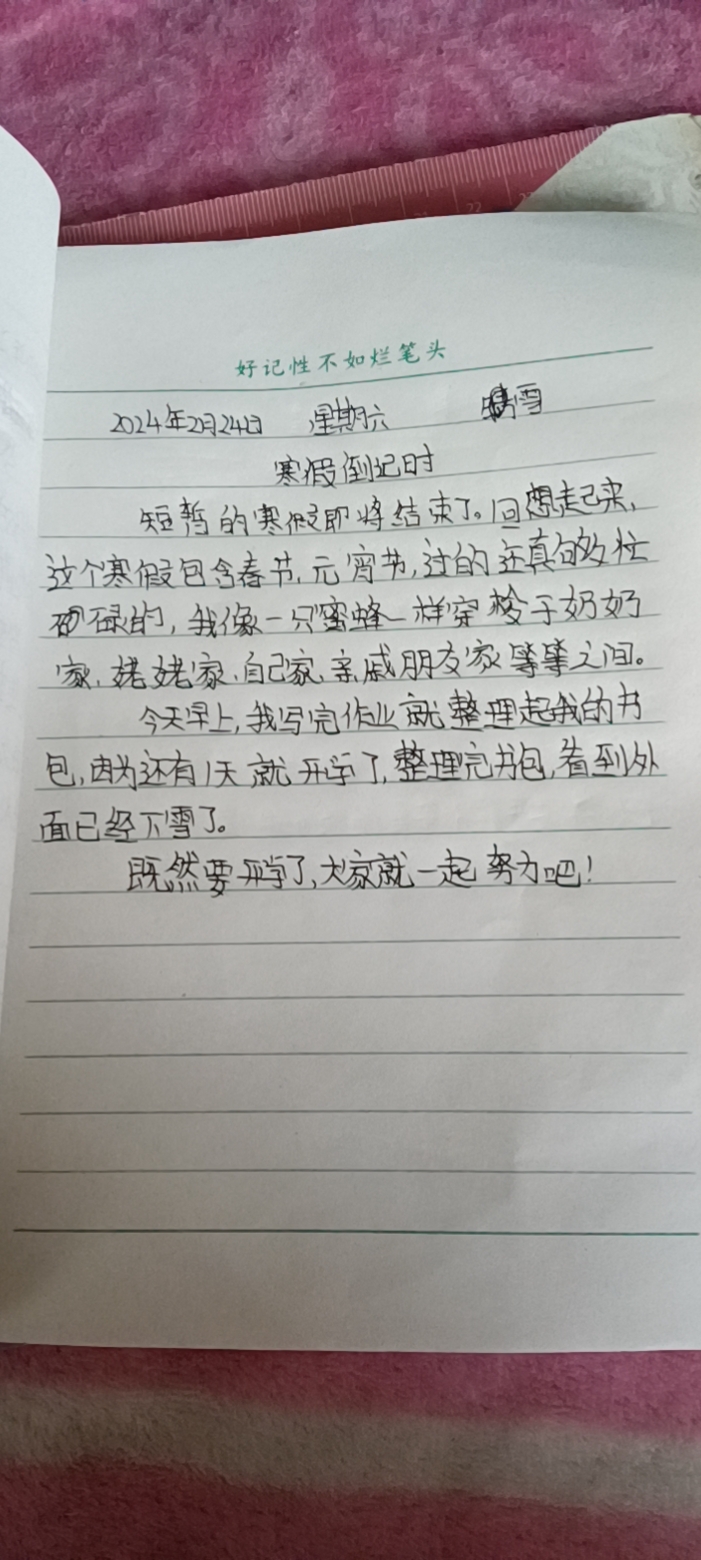 22
好记性不如烂笔头
2024年2月24日 星期六 雪
寒假倒记时
短暂的寒假即将结束了。回想走起来,
这个寒假包含春节、元宵节,过的还真够忙
碌的,我像一只蜜蜂一样穿梭于奶奶
家、姥姥家、自己家、亲戚朋友家等等之间。
今天早上,我写完作业就整理起我的书
包,因为还有1天就开学了,整理完书包,看到外
面已经下雪了。
既然要开学了,大家就一起努力吧!